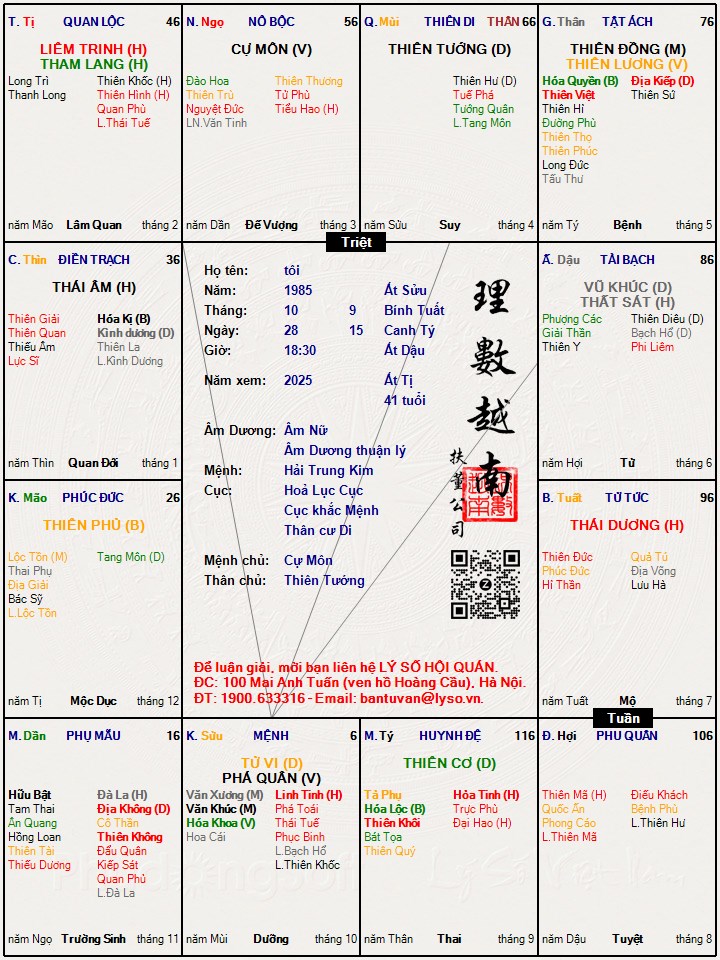 T. Tị QUAN LỘC 46
LIÊM TRINH (H)
THAM LANG (H)
Long Trì Thiên Khốc (H)
Thanh Long Thiên Hình (H)
Quan Phù
L.Thái Tuế
năm Mão Lâm Quan tháng 2
N. Ngọ NÔ BỘC 56
CỰ MÔN (V)
Đào Hoa Thiên Thương
Thiên Trù Tử Phù
Nguyệt Đức Tiểu Hao (H)
LN.Văn Tinh
năm Dần Đế Vượng tháng 3
Q. Mùi THIÊN DI THÂN 66
THIÊN TƯỚNG (D)
Thiên Hư (D)
Tuế Phá
Tướng Quân
L.Tang Môn
năm Sửu Suy tháng 4
G. Thân TẬT ÁCH 76
THIÊN ĐỒNG (M)
THIÊN LƯƠNG (V)
Hóa Quyền (B) Địa Kiếp (D)
Thiên Việt Thiên Sứ
Thiên Hỉ
Đường Phù
Thiên Thọ
Thiên Phúc
Long Đức
Tấu Thư
năm Tý Bệnh tháng 5
Triệt
C. Thìn ĐIỀN TRẠCH 36
THÁI ÂM (H)
Thiên Giải Hóa Kị (B)
Thiên Quan Kình dương (D)
Thiếu Âm Thiên La
Lực Sĩ L.Kình Dương
năm Thìn Quan Đới tháng 1
Họ tên: tôi
Năm: 1985 Ất Sửu
Tháng: 10 9 Bính Tuất
Ngày: 28 15 Canh Tý
Giờ: 18:30 Ất Dậu
Năm xem: 2025 Ất Tị
41 tuổi
Âm Dương: Âm Nữ
Âm Dương thuận lý
Mệnh: Hải Trung Kim
Cục: Hoả Lục Cục
Cục khắc Mệnh
Thân cư Di
Mệnh chủ: Cự Môn
Thân chủ: Thiên Tướng
理數越南
扶董公司
Để luận giải, mời bạn liên hệ LÝ SỐ HỘI QUÁN.
ĐC: 100 Mai Anh Tuấn (ven hồ Hoàng Cầu), Hà Nội.
ĐT: 1900.633316 - Email: bantuvan@lyso.vn.
Ấ. Dậu TÀI BẠCH 86
VŨ KHÚC (D)
THẤT SÁT (H)
Phượng Các Thiên Diêu (D)
Giải Thần Bạch Hổ (D)
Thiên Y Phi Liêm
năm Hợi Tử tháng 6
K. Mão PHÚC ĐỨC 26
THIÊN PHỦ (B)
Lộc Tồn (M) Tang Môn (D)
Thai Phụ
Địa Giải
Bác Sỹ
L.Lộc Tồn
năm Tị Mộc Dục tháng 12
B. Tuất TỬ TỨC 96
THÁI DƯƠNG (H)
Thiên Đức Quả Tú
Phúc Đức Địa Võng
Hỉ Thần Lưu Hà
năm Tuất Mộ tháng 7
Tuần
M. Dần PHỤ MẪU 16
Hữu Bật Đà La (H)
Tam Thai Địa Không (D)
Ân Quang Cô Thần
Hồng Loan Thiên Không
Thiên Tài Đẩu Quân
Thiếu Dương Kiếp Sát
Quan Phủ
L.Đà La
năm Ngọ Trường Sinh tháng 11
K. Sửu MỆNH 6
TỬ VI (D)
PHÁ QUÂN (V)
Văn Xương (M) Linh Tinh (H)
Văn Khúc (M) Phá Toái
Hóa Khoa (V) Thái Tuế
Hoa Cái Phục Binh
L.Bạch Hổ
L.Thiên Khốc
năm Mùi Dưỡng tháng 10
M. Tý HUYNH ĐỆ 116
THIÊN CƠ (D)
Tả Phụ Hỏa Tinh (H)
Hóa Lộc (B) Trực Phù
Thiên Khôi Đại Hao (H)
Bát Tọa
Thiên Quý
năm Thân Thai tháng 9
Đ. Hợi PHU QUÂN 106
Thiên Mã (H) Điếu Khách
Quốc Ấn Bệnh Phù
Phong Cáo L.Thiên Hư
L.Thiên Mã
năm Dậu Tuyệt tháng 8